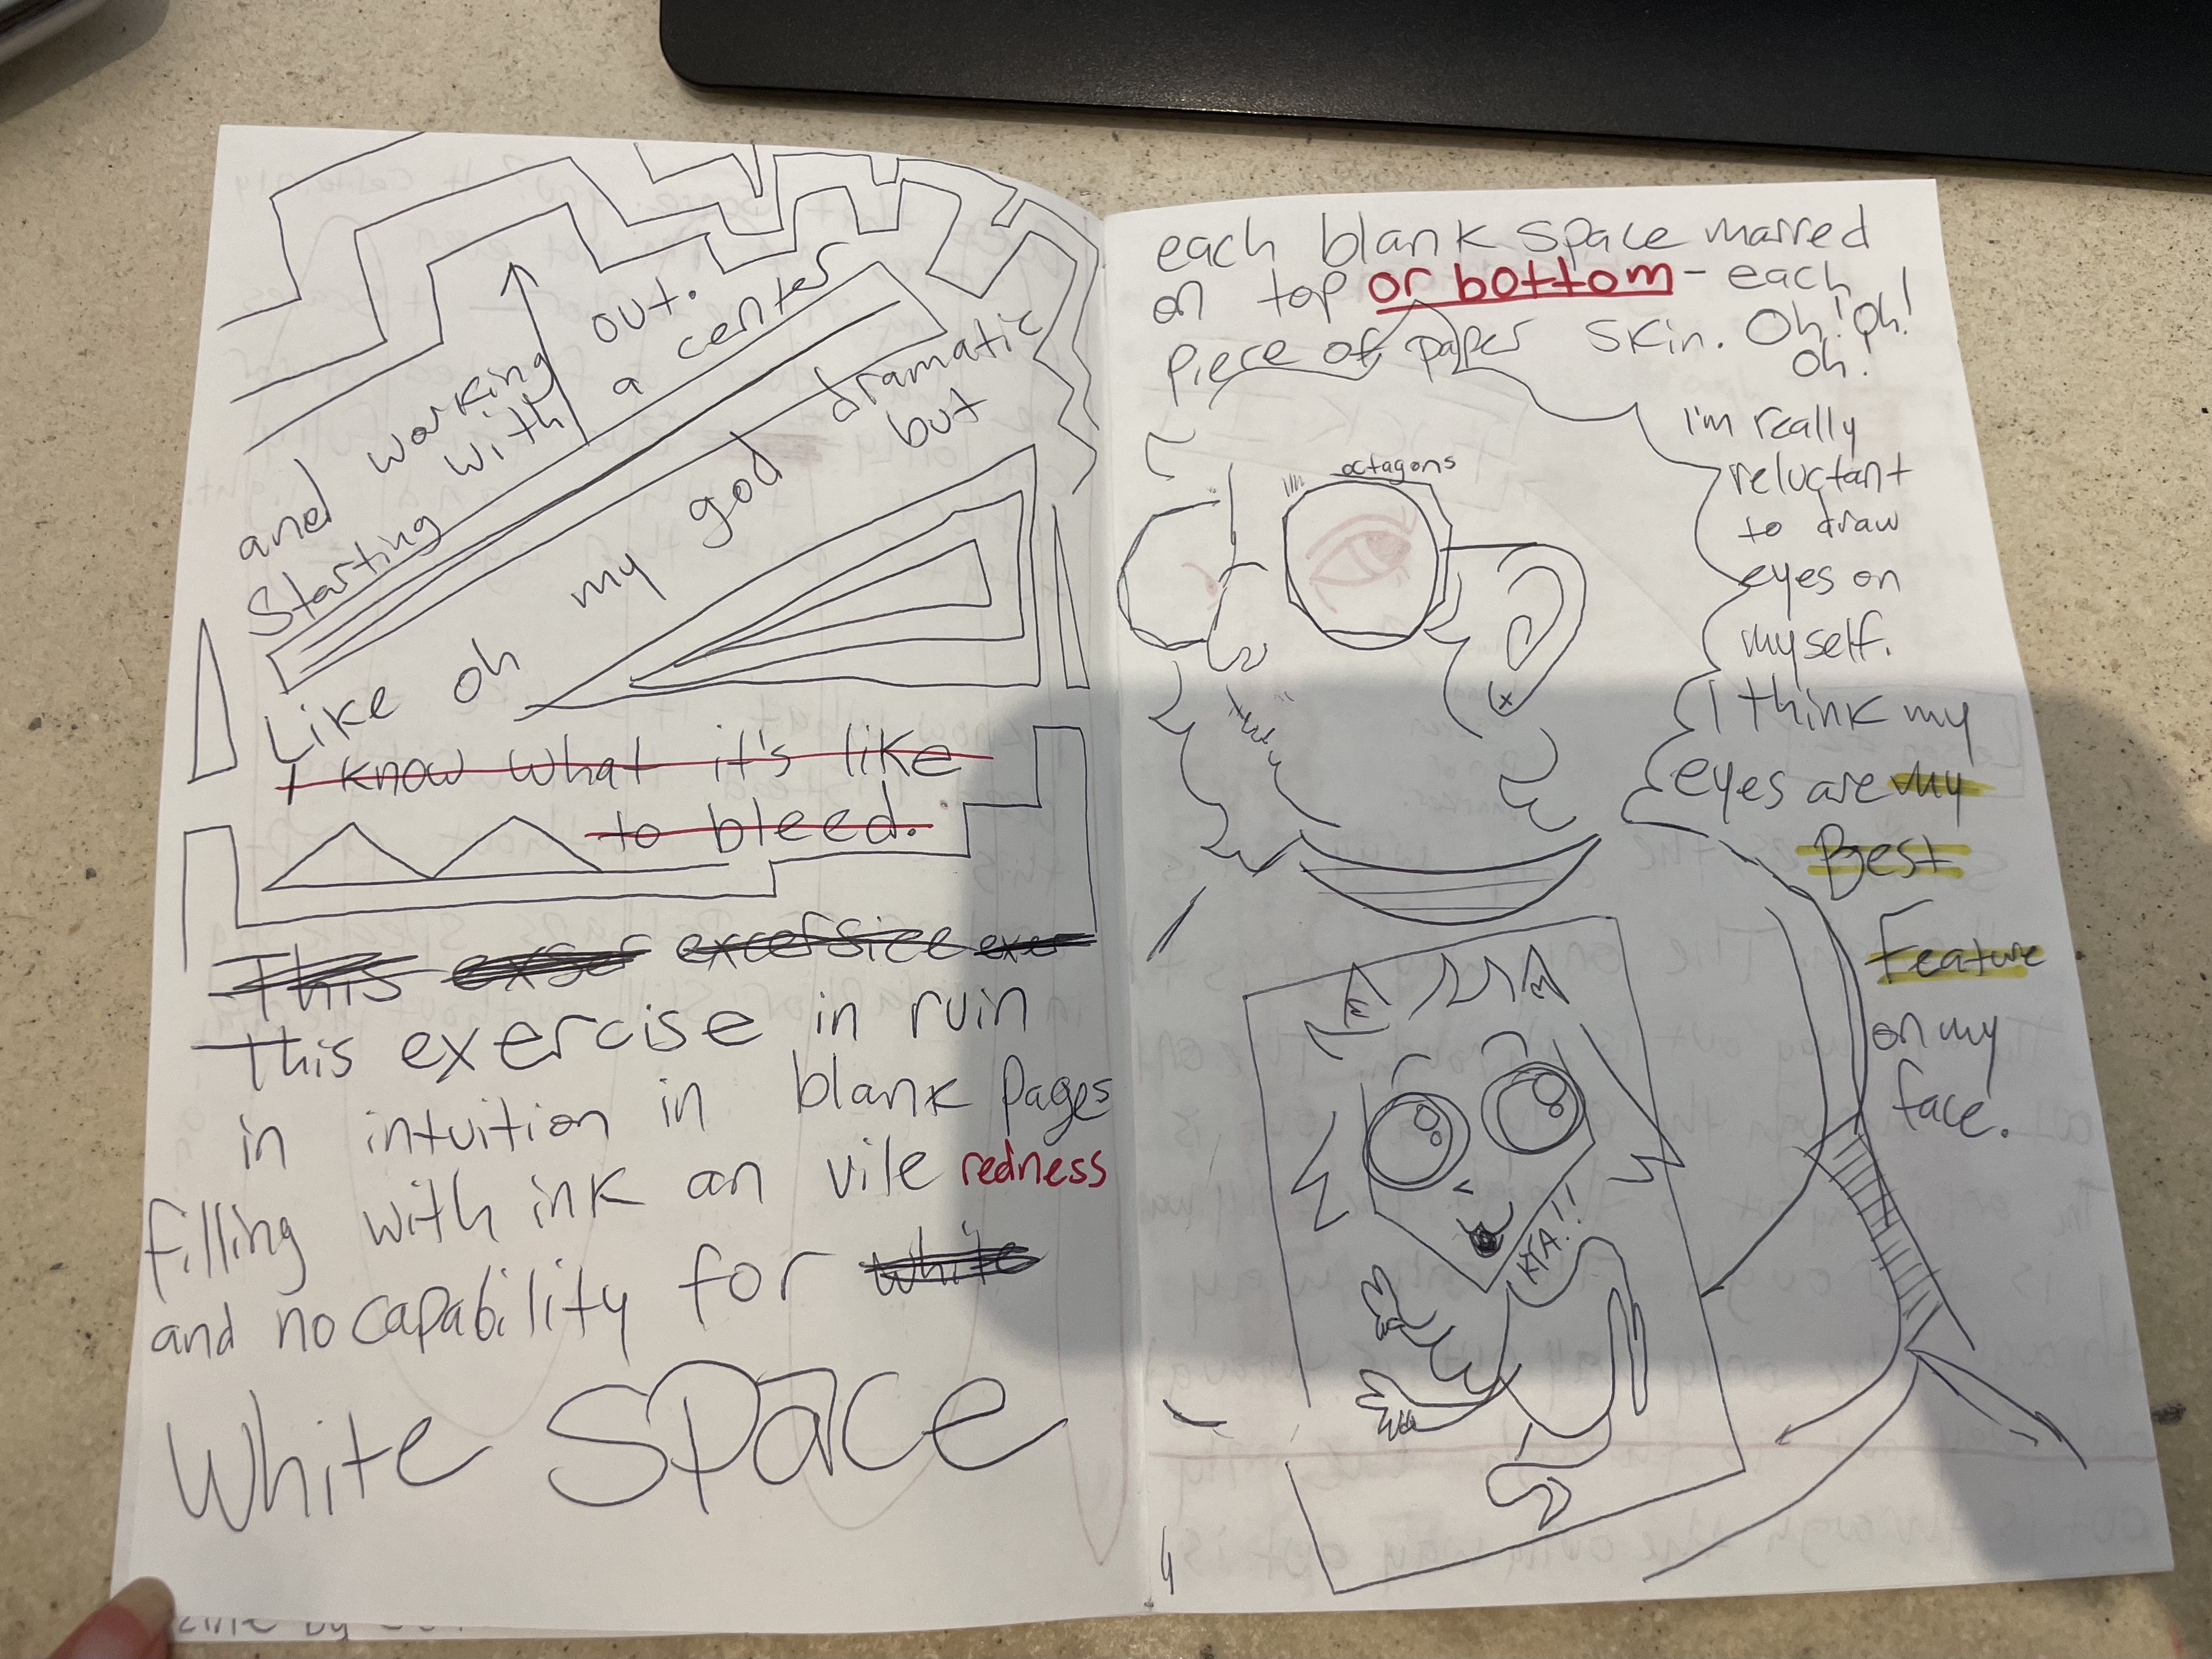 and working out.
Starting with a center
Like oh my god dramatic
but
I know what it's like
to bleed.
This exser excersice exer
this exercise in ruin
in intuition in blank pages
filling with ink an vile redness
and no capability for white
White Space
each blank space marred
on top or bottom - each
piece of paper skin. Oh! Oh!
Oh!
octagons
I'm really
reluctant
to draw
eyes on
myself.
I think my
eyes are my
Best
Feature
on my
face.
KYA!!
zine by